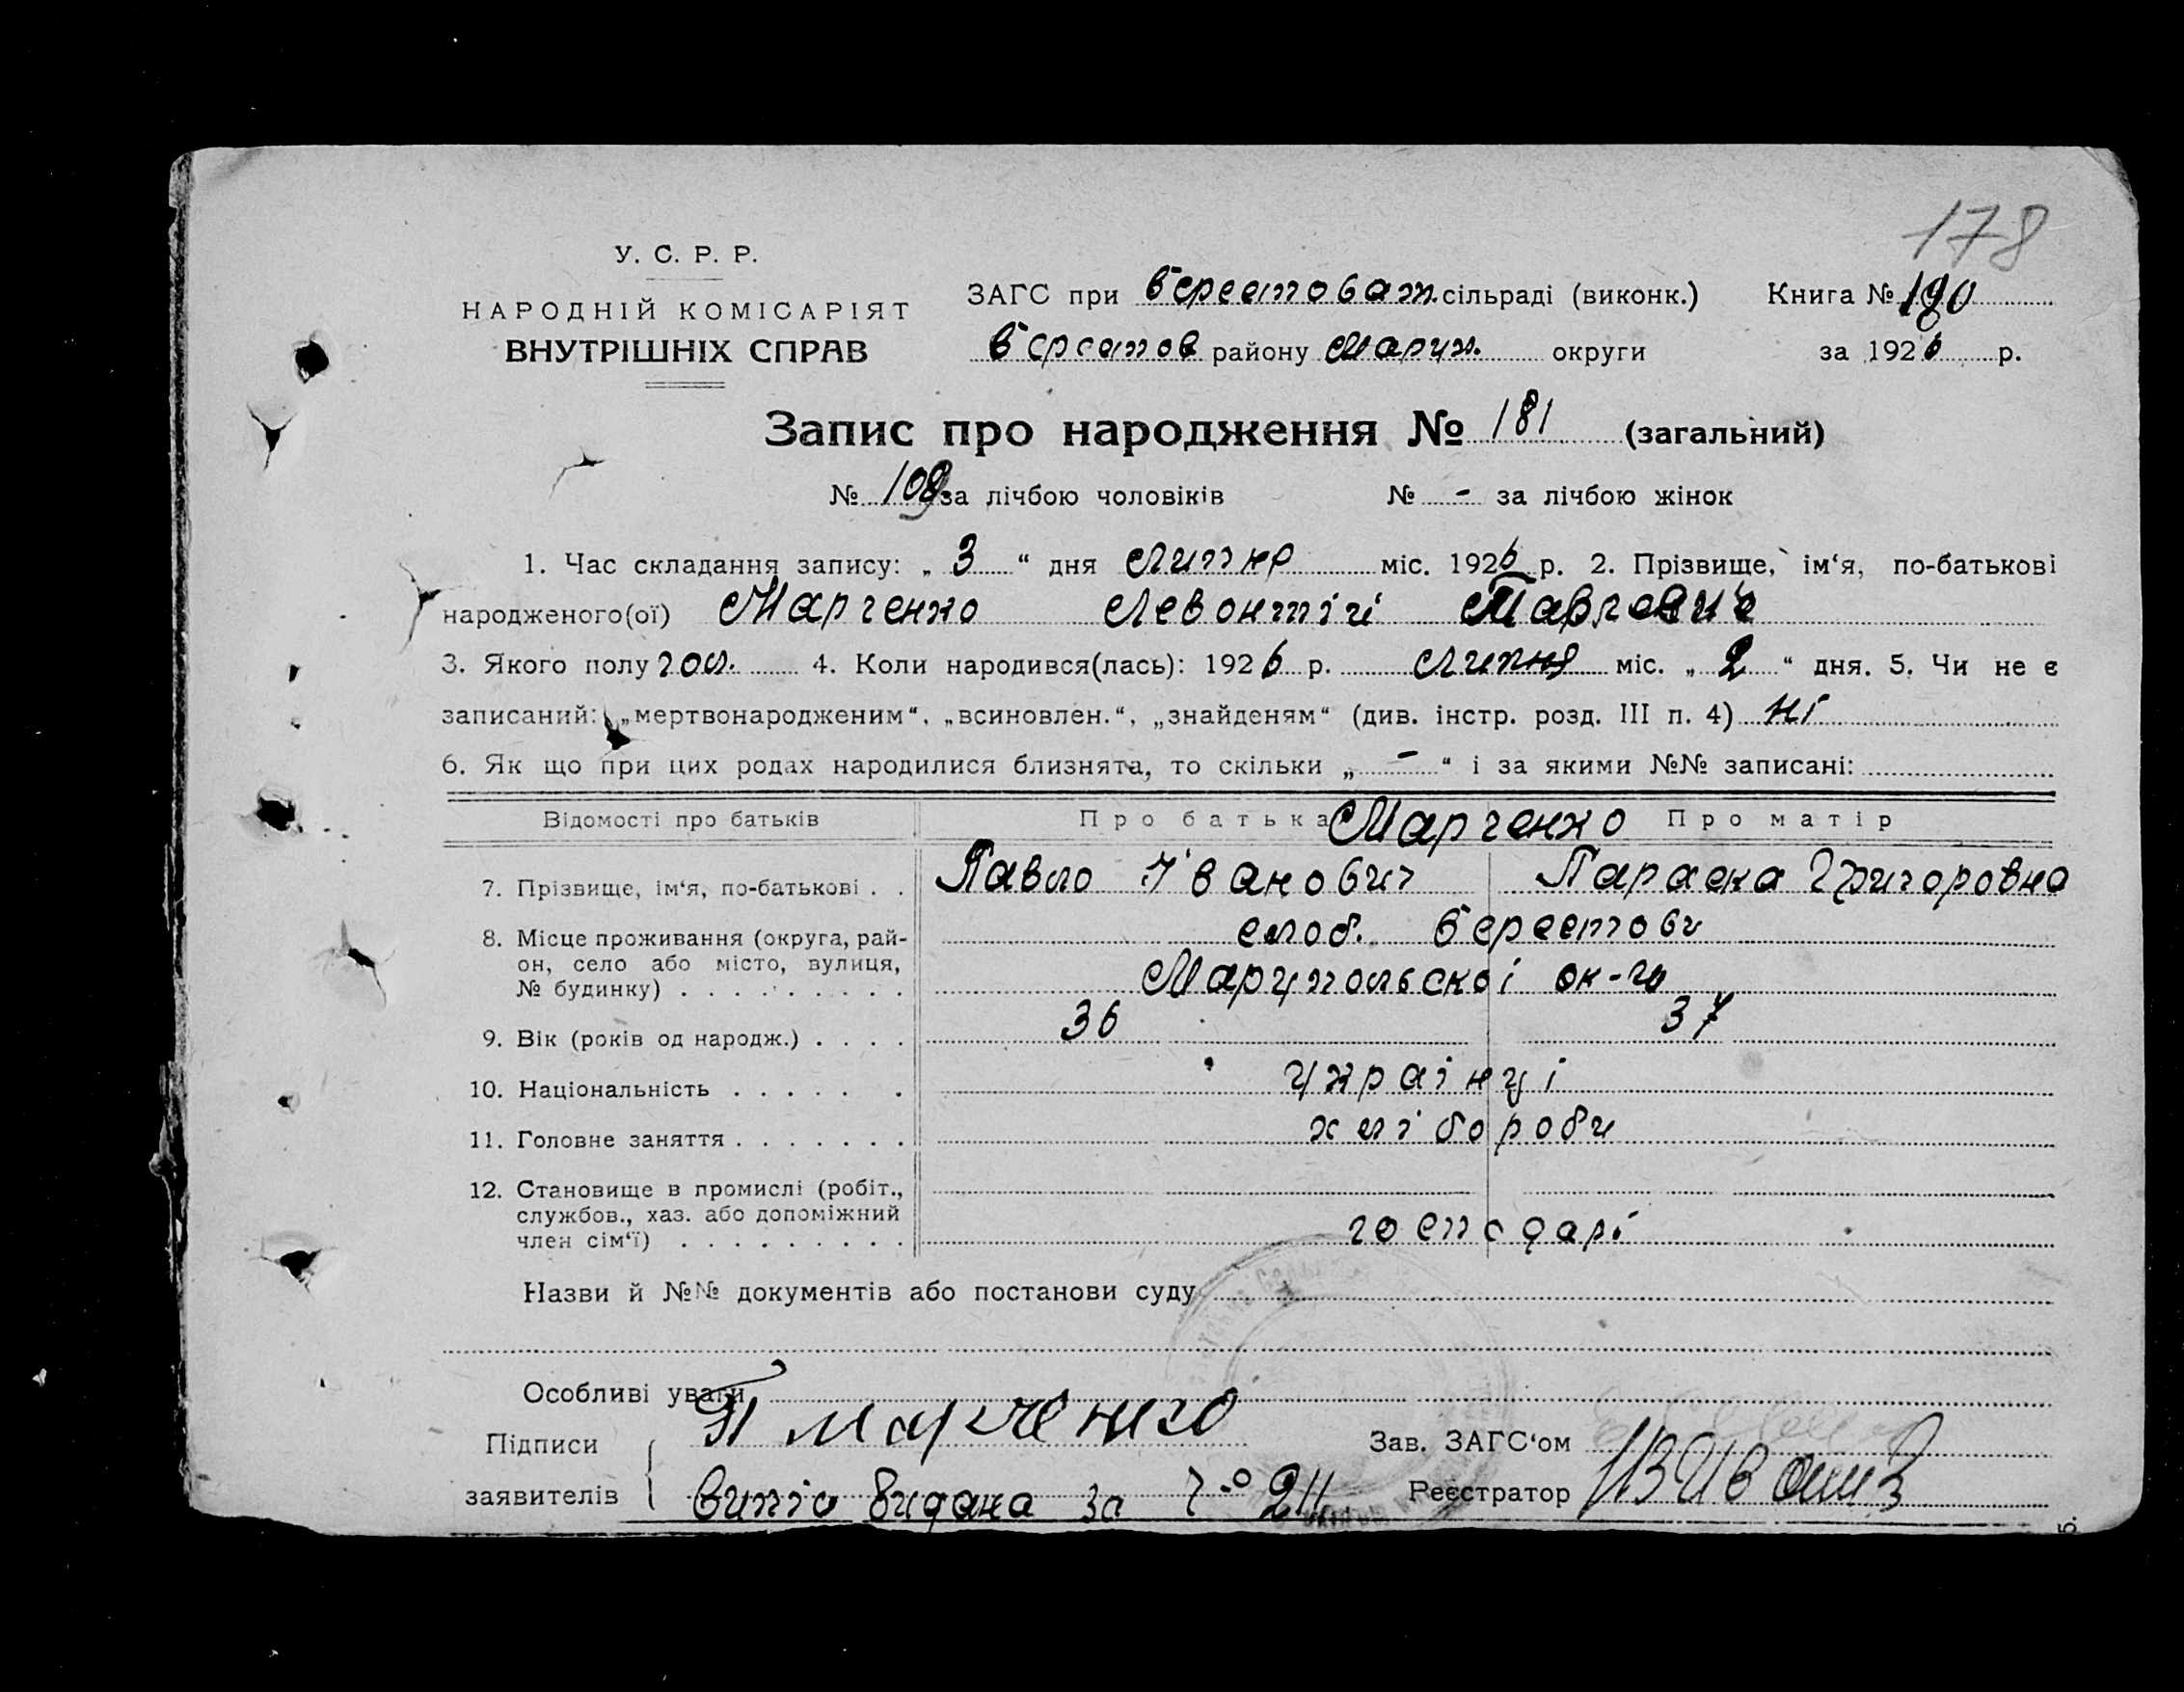 178
У. С. Р. Р.
НАРОДНІЙ КОМІСАРІЯТ
ВНУТРІШНІХ СПРАВ
ЗАГС при Берестоват. сільраді (виконк.) Книга № 190
Берестов району Маріуп. округи за 1926 р.
Запис про народження № 181 (загальний)
№ 109 за лічбою чоловіків № - за лічбою жінок
1. Час складання запису: „ 3 “ дня Липня міс. 1926 р. 2. Прізвище, ім‘я, по-батькові
народженого(ої) Марченко Левонтій Павлович
3. Якого полу чол. 4. Коли народився(лась): 1926 р. Липня міс. „ 2 “ дня. 5. Чи не є
записаний: „мертвонародженим“, „всиновлен.“, „знайденям“ (див. інстр. розд. III п. 4) ні
6. Як що при цих родах народилися близнята, то скільки „ - “ і за якими №№ записані:
Відомості про батьків Про батька Марченко Про матір
7. Прізвище, ім‘я, по-батькові . . Павло Іванович Параска Григоровна
8. Місце проживання (округа, рай-
он, село або місто, вулиця,
№ будинку) . . . . . . . . .
слоб. Берестови
Маріупольскої ок-ги
9. Вік (років од народж.) . . . . 36 37
10. Національність . . . . . . українці
11. Головне заняття . . . . . . . хліборοби
12. Становище в промислі (робіт.,
службов., хаз. або допоміжний
член сім‘ї) . . . . . . . . . господарі
Назви й №№ документів або постанови суду
Особливі уваги
Підписи П Марченко Зав. ЗАГС‘ом
заявителів Випис видана за № 211 Реєстратор